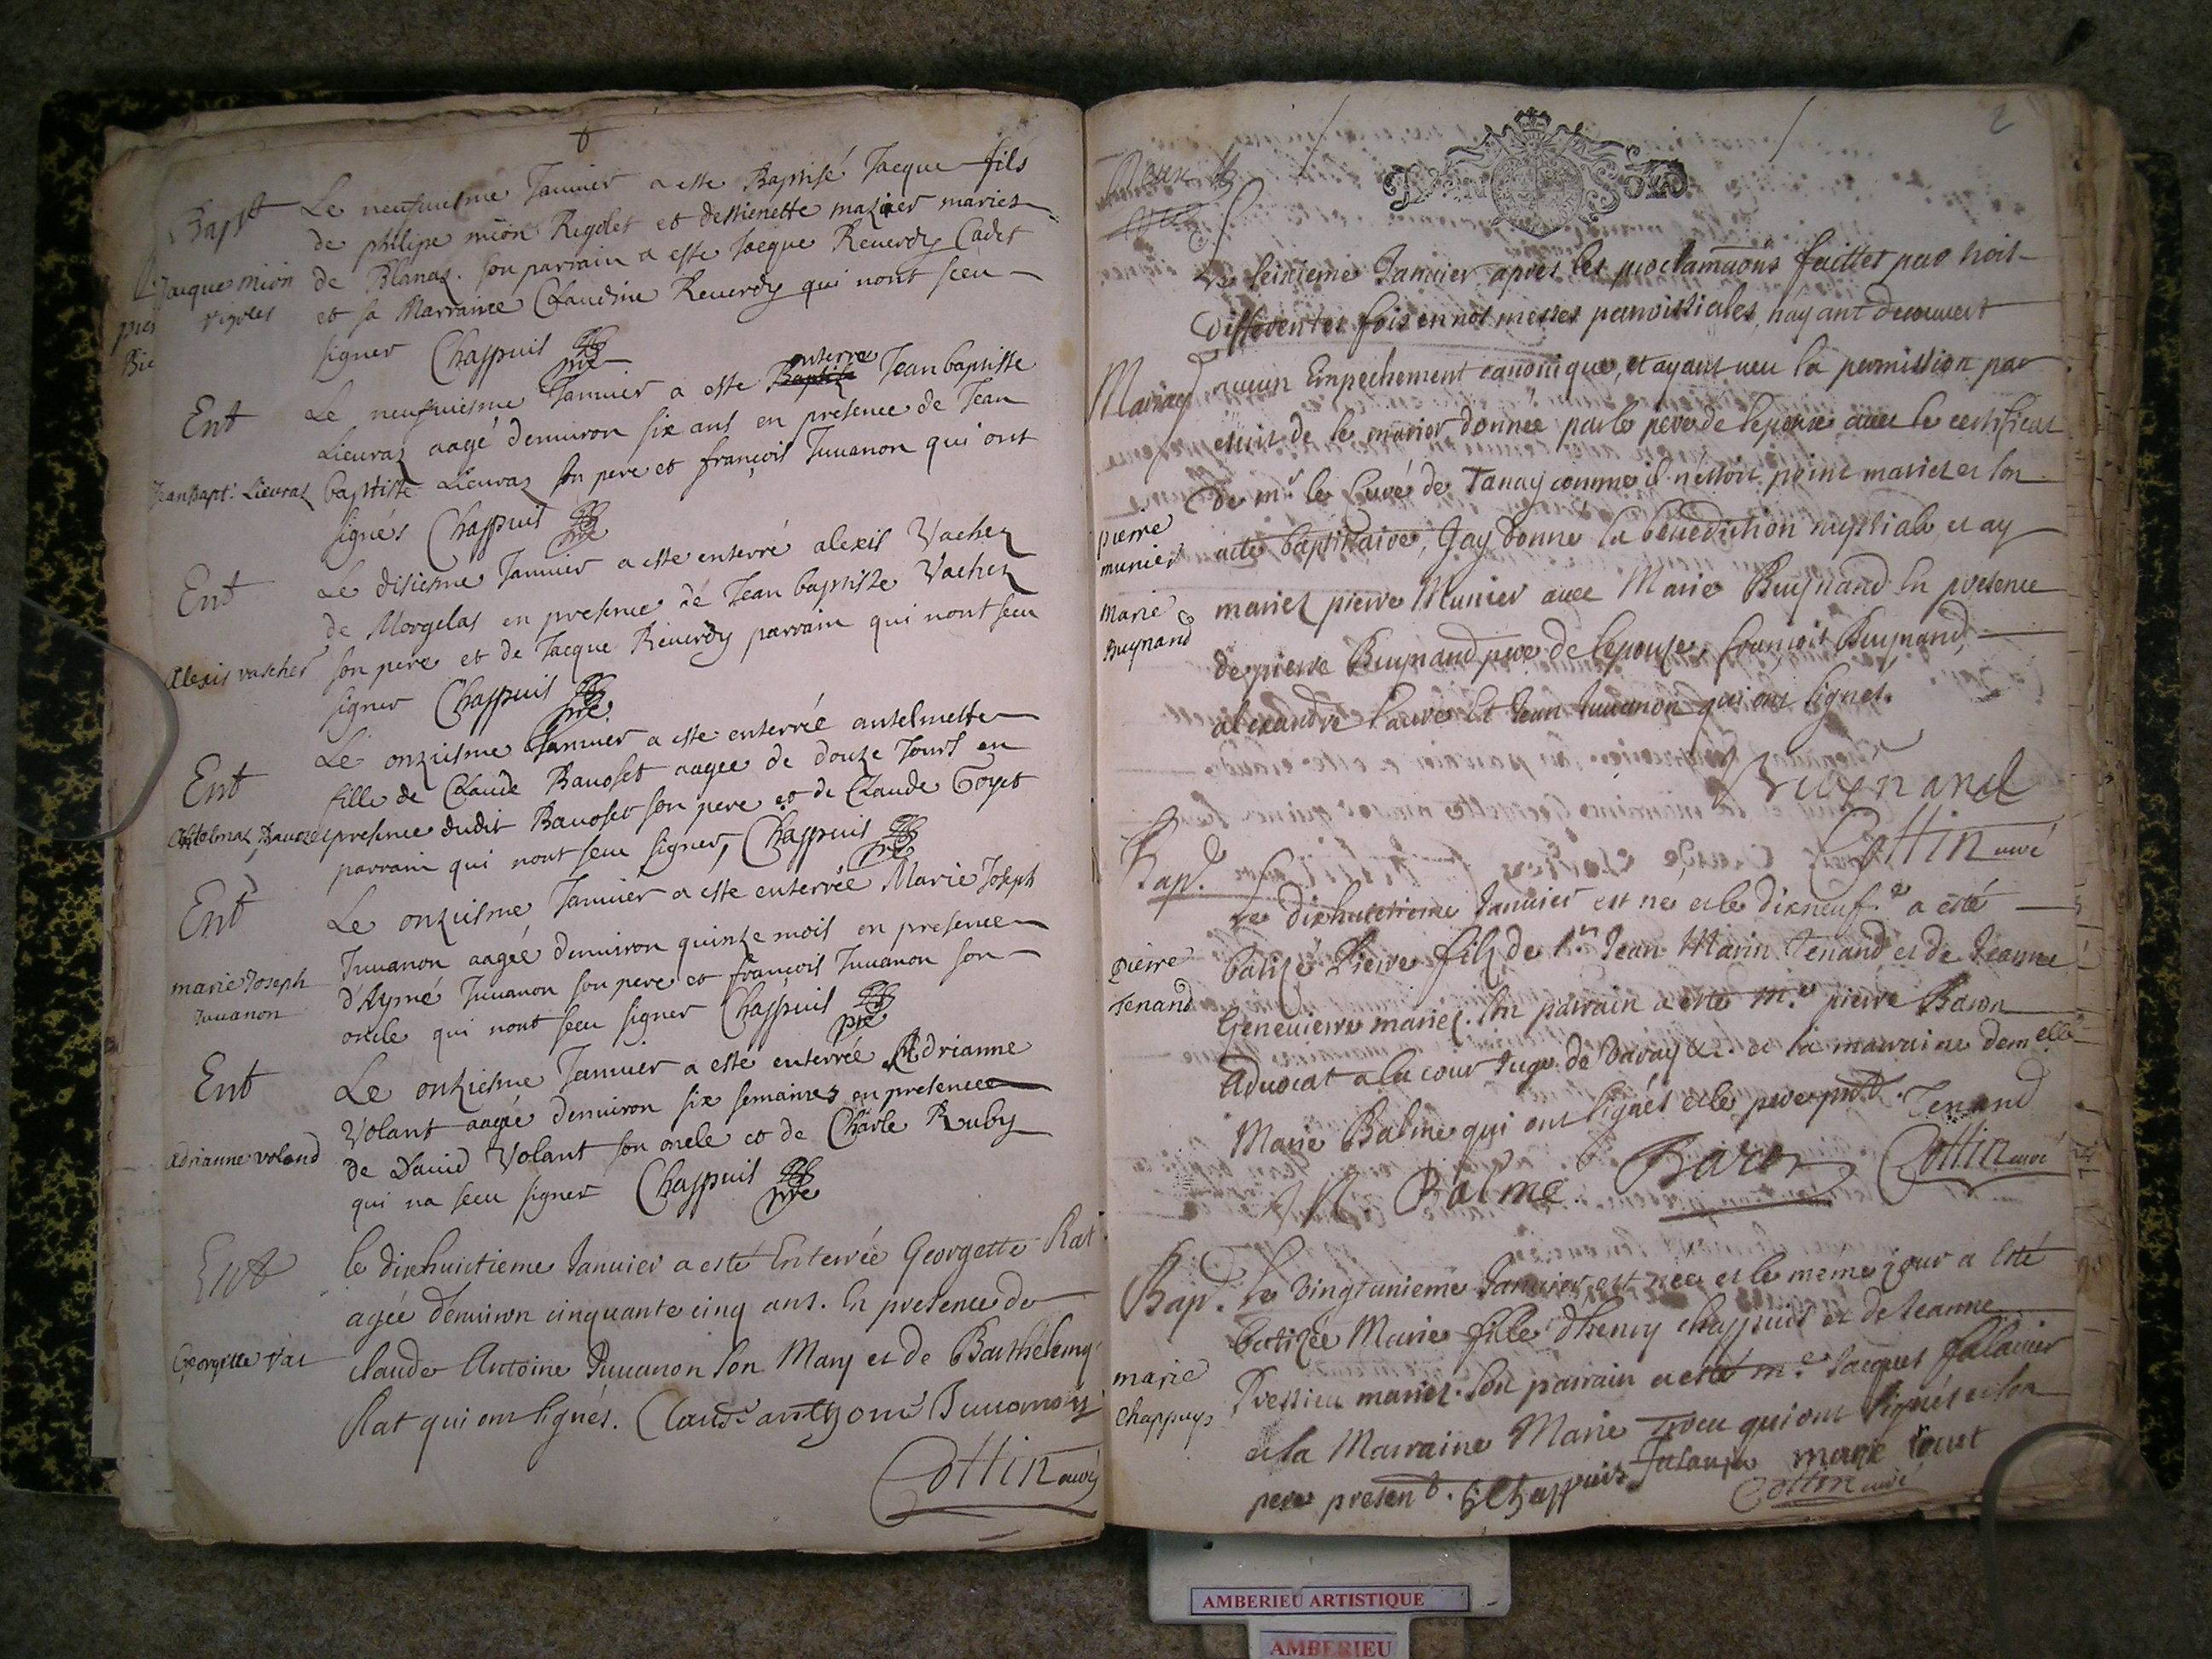 Bapt
Le neufuiesme Januier a este Baptisé Jacque fils
de philipe mion Rigolet et destienette mazuer mariez
Jacque mion
rigolet
de Blanaz. son parrain a este Jacque Reuerdy Cadet
et sa Marraine Claudine Reuerdy qui nont sceu
signer Chappuis pre
Ent
Le neufuiesme Januier a este enterre Jean baptiste
Lieuraz aagé denuiron six ans en presence de Jean
Jean Bapt: Lieuraz
baptiste Lieuraz son pere et françois Juuanon qui ont
signés Chappuis pre
Ent
Le disiesme Januier a este enterré alexis Vachez
de Morgelas en presence de Jean baptiste Vachez
Alexis vascher
son pere et de Jacque Reuerdy parrain qui nont sceu
signer Chappuis pre
Ent
Le onziesme Januier a este enterréé antelmette
fille de Claude Bauoset aagee de douze Jours en
presence dudit Bauoset son pere et de Claude Goyet
parrain qui nont sceu signer, Chappuis pre
Ent
Le onziesme Januier a este enterréé Marie Joseph
Juuanon aagéé denuiron quinze mois en presence
marie Joseph
Juuanon
d'Aymé Juuanon son pere et françois Juuanon son
oncle qui nont sceu signer Chappuis pre
Ent
Le onziesme Januier a este enterréé Adrianne
Volant aagéé denuiron six semaines en presence
Adrianne voland
de Dauid Volant son oncle et de Charle Ruby
qui na sceu signer Chappuis pre
Ent
le dixhuictieme Januier a esté Enterrée Georgette Rat
agée denuiron cinquante cinq ans. En presence de
Georgette rat
claude Antoine Juuanon son Mary et de Barthelemy
Rat qui ont signés. Claude anthone Juuanon
Cottin curé
2
Le seizieme Januier apres les proclamaons faittes par trois
differentes fois en nos messes parroissiales, n'ayant decouuert
Mariag
aucun Empechement canonique, et ayant ueu la permission par
escrit de se marier donnée par le pere de lepoux auec le certificat
de mr le Curé de Tanay comme il n'estoit point mariez et son
pierre
munier
acte baptistaire, Jay donné la benediction nuptiale et ay
marie
Buynand
mariez pierre Munier auec Marie Buynand En presence
de pierre Buynand pere de lepouse, françois Buynand,
alexandre Faure et Jean Juuanon qui ont signes.
Buynand
Cottin curé
Bap.
Le dixhuictieme Januier est né et le dixneuf.e a esté
pierre
Tenand
batizé Pierre filz de sr Jean Marin Tenand et de Jeanne
Geneuieure mariez. son parrain a esté m.e pierre Baron
Aduocat a la cour Juge de Varay &c. et la marraine dem.elle
Marie Balme qui ont signés et le pere pnt. Tenand
M Balme Baron Cottin curé
Bap.
Le Vingtunieme Januier est née et le meme jour a esté
batizée Marie fille d'henry chappuis et de Jeanne
marie
Chappuys
Pressieu mariez. son parrain a esté m.e Jacques falauier
et la Marraine Marie qui ont signés et son
pere present. h Chappuis marie
Cottin curé
AMBERIEU ARTISTIQUE
AMBERIEU